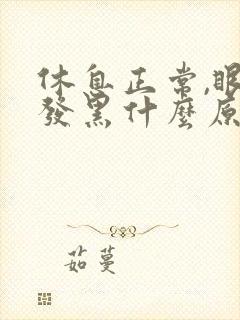 休息正常,眼
發黑什麼原
茹蔓